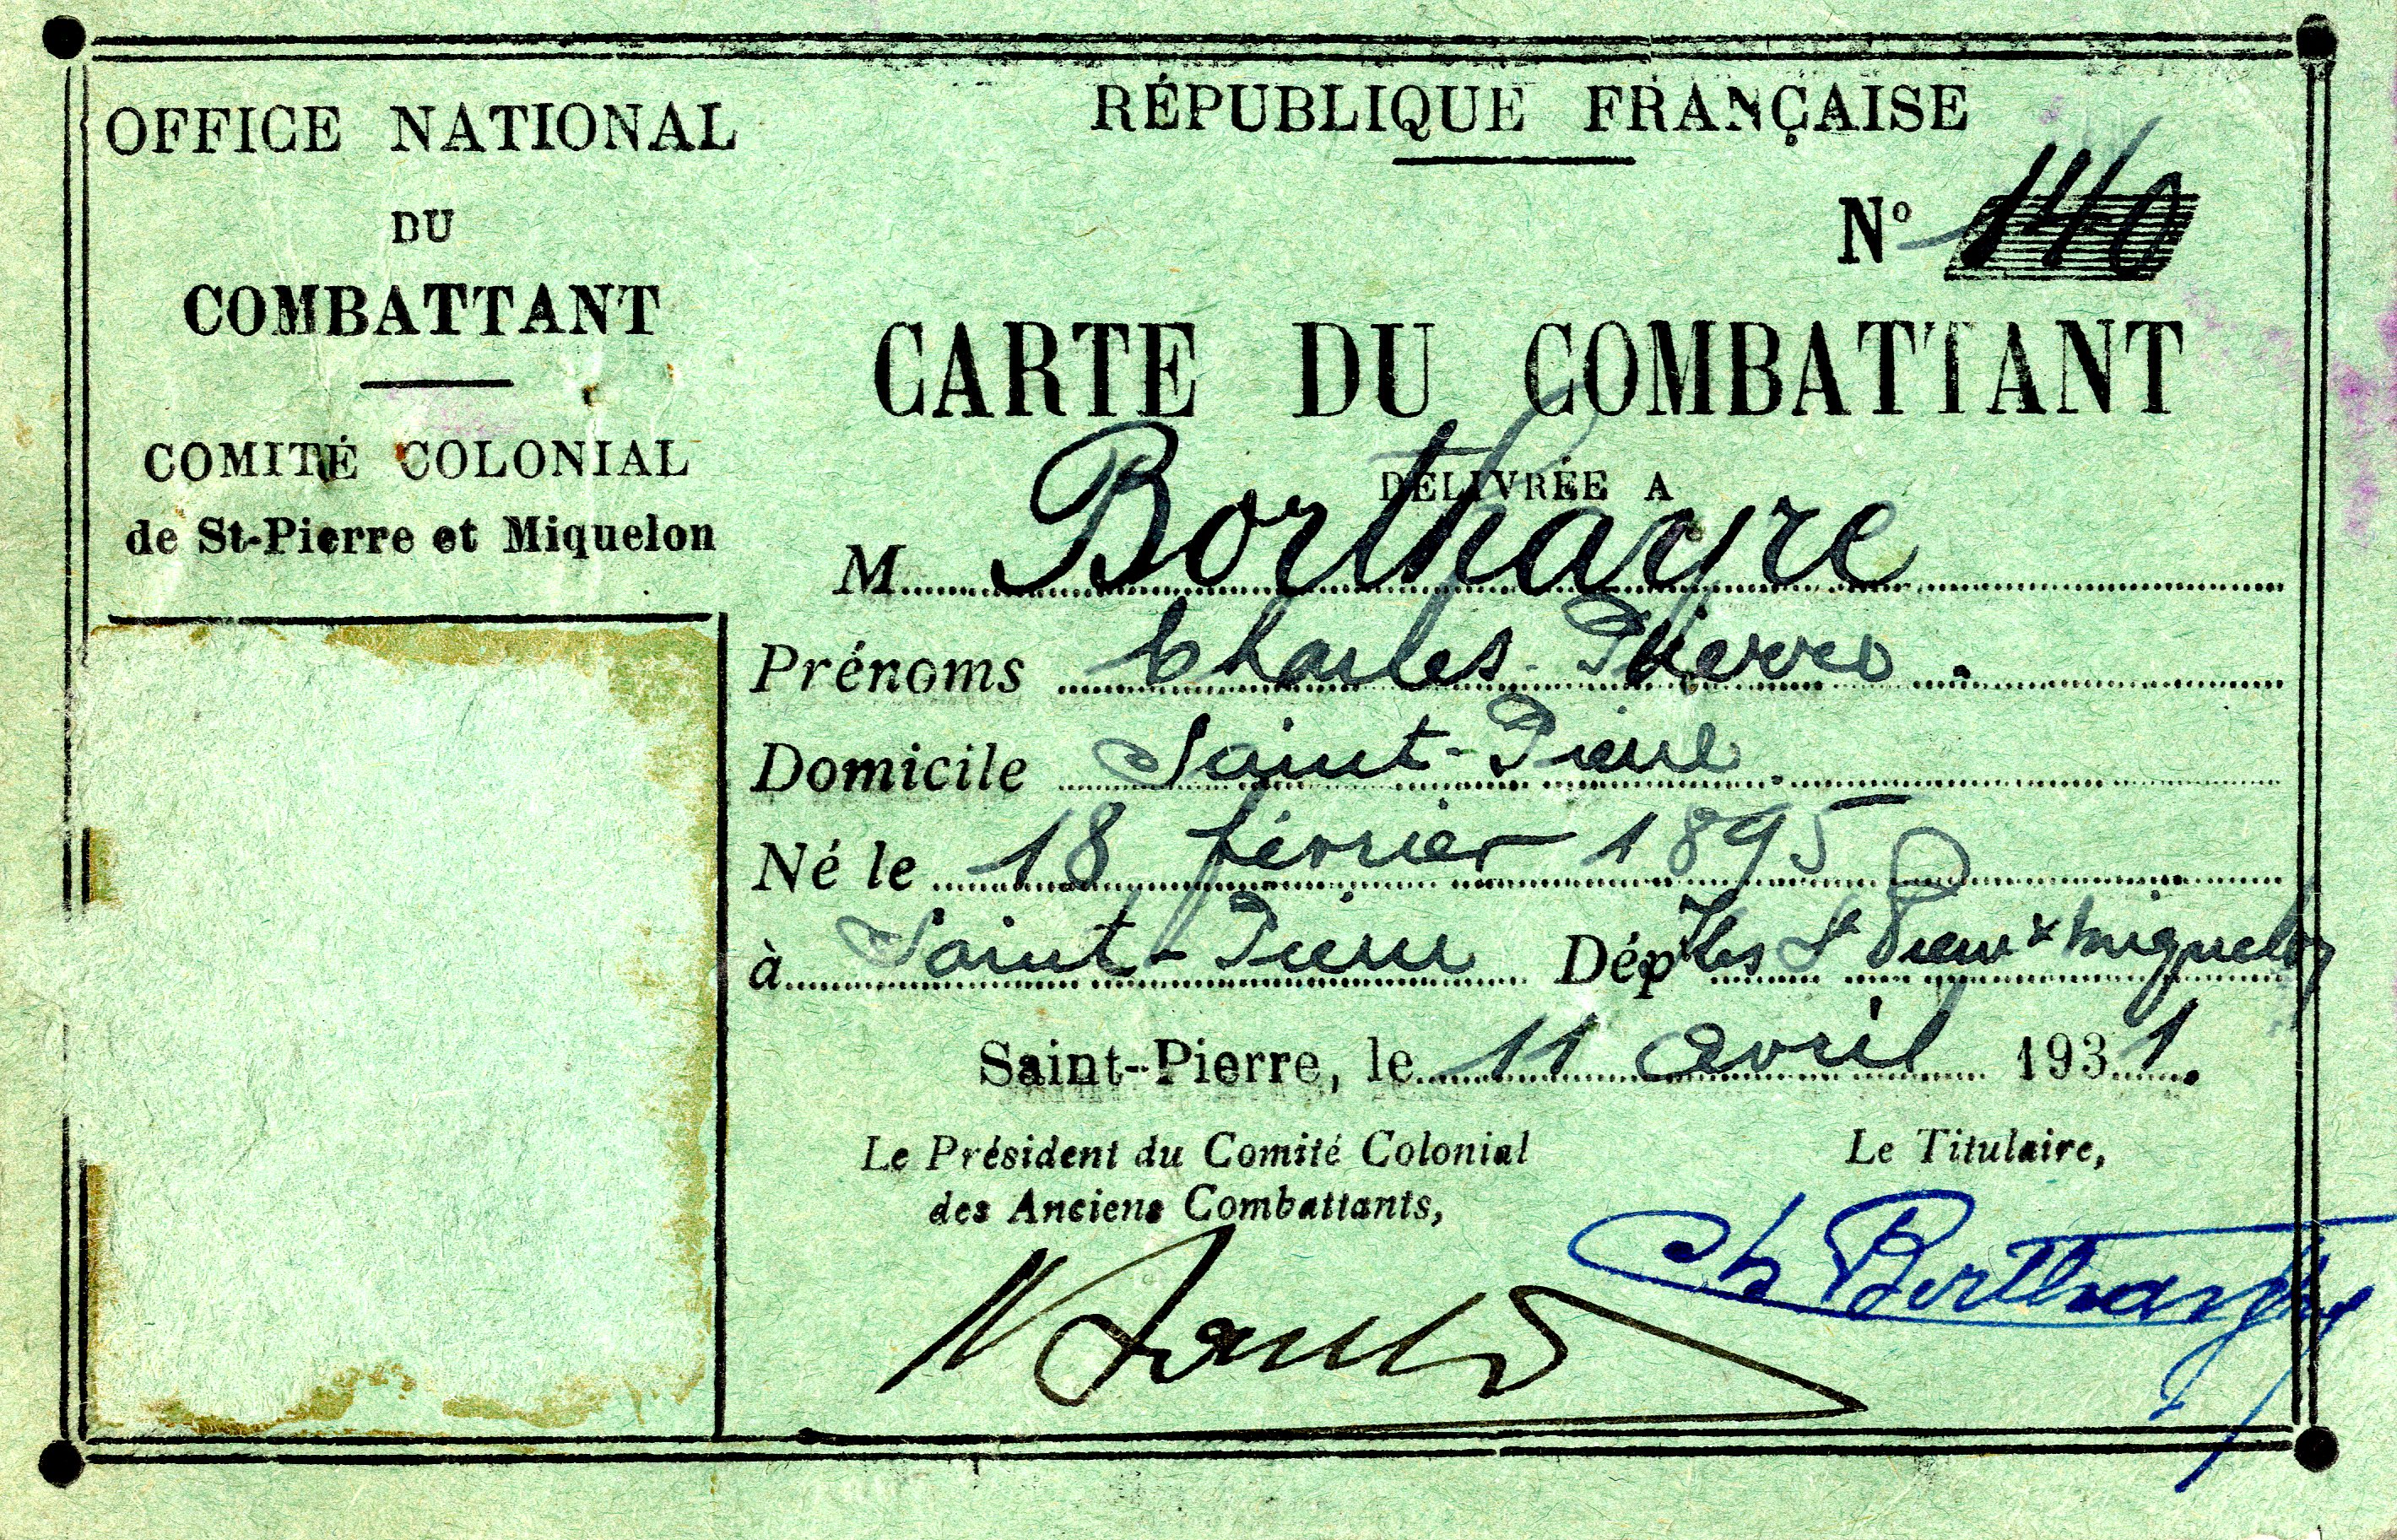 OFFICE NATIONAL
DU
COMBATTANT
COMITÉ COLONIAL
de St-Pierre et Miquelon
RÉPUBLIQUE FRANÇAISE
Nº 140
CARTE DU COMBATTANT
DÉLIVRÉE A
M. Borthayre
Prénoms Charles-Pierre.
Domicile Saint-Pierre.
Né le 18 février 1895
à Saint-Pierre Dép Iles St Pierre & Miquelon
Saint-Pierre, le 11 avril 1931.
Le Président du Comité Colonial
des Anciens Combattants,
Le Titulaire,
Ch Borthayre